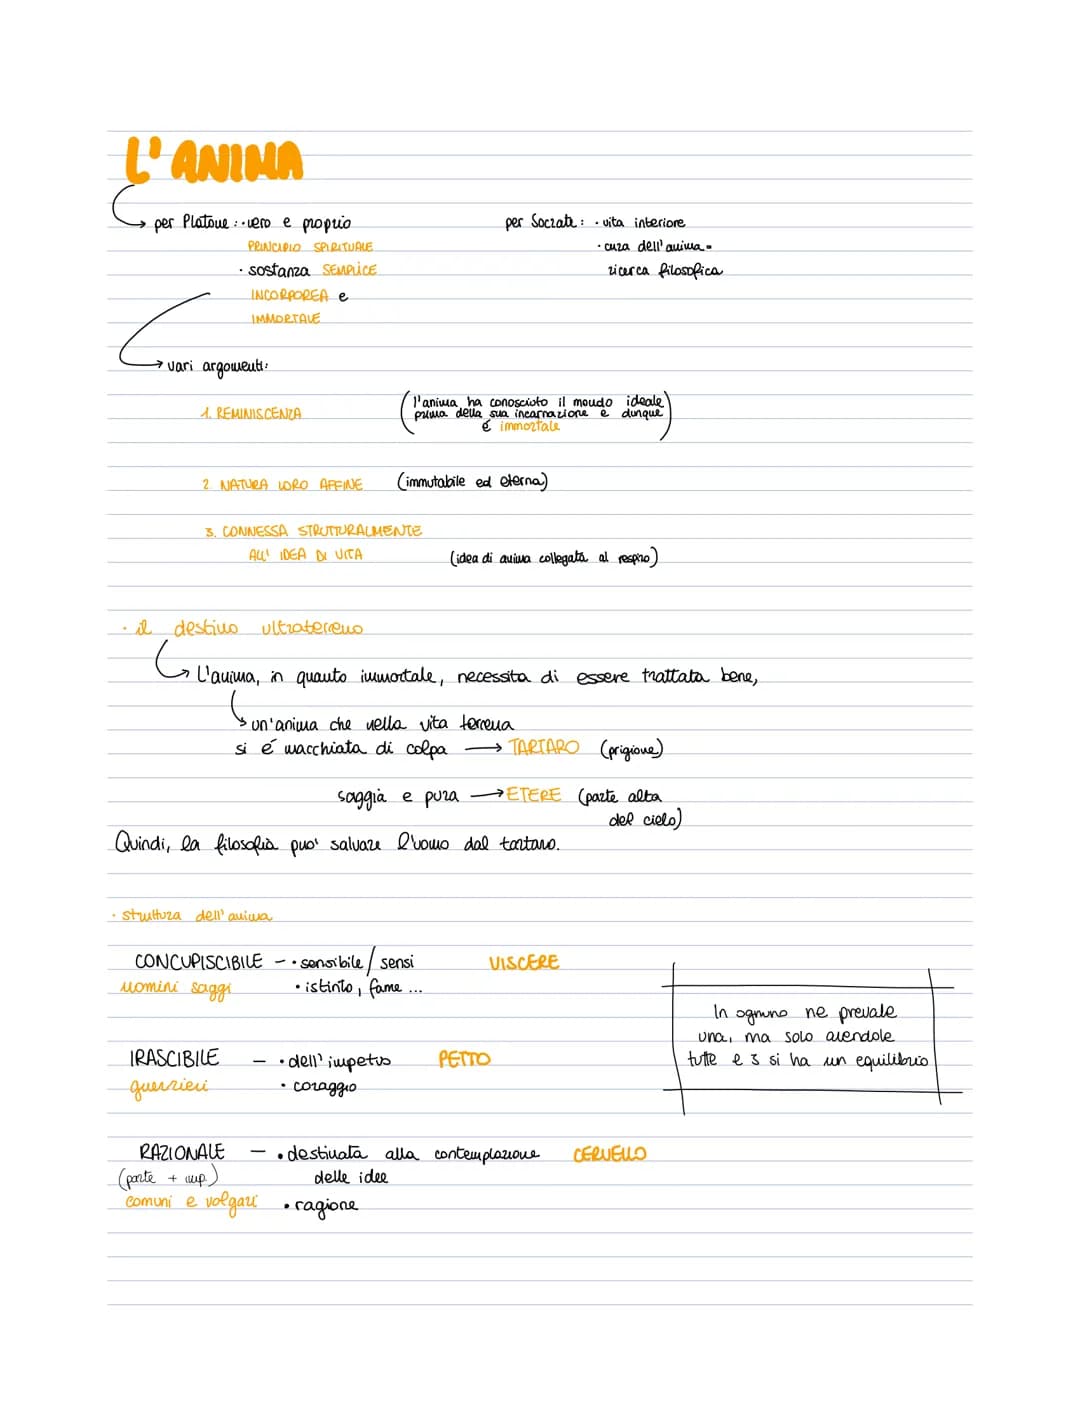 L'ANIMA
per Platone: · vero e proprio
PRINCIPIO SPIRITUALE
· sostanza SEMPLICE
INCORPOREA e
IMMORTALE
per Socrate: · vita interiore
· cura dell'anima =
ricerca filosofica
vari argomenti:
1. REMINISCENZA
(l'anima ha conosciuto il mondo ideale
prima della sua incarnazione e dunque
é immortale)
2. NATURA LORO AFFINE (immutabile ed eterna)
3. CONNESSA STRUTTURALMENTE
ALL' IDEA DI VITA (idea di anima collegata al respiro)
· il destino ultraterreno
L'anima, in quanto immortale, necessita di essere trattata bene,
un'anima che nella vita terrena
si é macchiata di colpa → TARTARO (prigione)
saggia e pura → ETERE (parte alta
del cielo)
Quindi, la filosofia puo' salvare l'uomo dal tartaro.
· struttura dell'anima
CONCUPISCIBILE – · sensibile / sensi VISCERE
uomini saggi · istinto, fame ...
IRASCIBILE – · dell'impetus PETTO
guerrieri · coraggio
RAZIONALE – · destinata alla contemplazione CERVELLO
(parte + imp.) delle idee
comuni e volgari · ragione
In ognuno ne prevale
una, ma solo avendole
tutte e 3 si ha un equilibrio